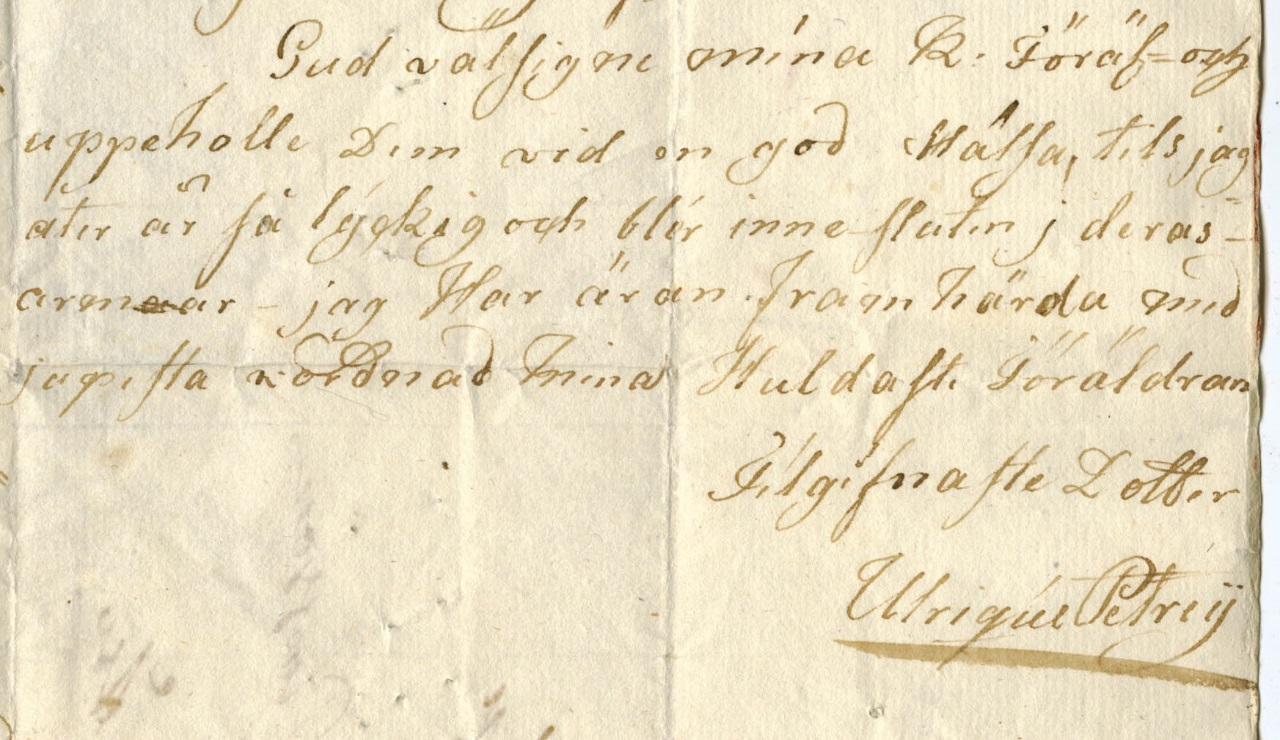 Gud välsigne mina K: Föräl= och
uppeholle Dem vid en god Hälsa, tils jag
åter är så lÿcklig och blir inneslutin j deras=
armar – jag Har äran framhärda med
jupesta vördnad Mina Huldaste Föräldrars
Tilgifnaste Dotter
Ulrique Petreÿ